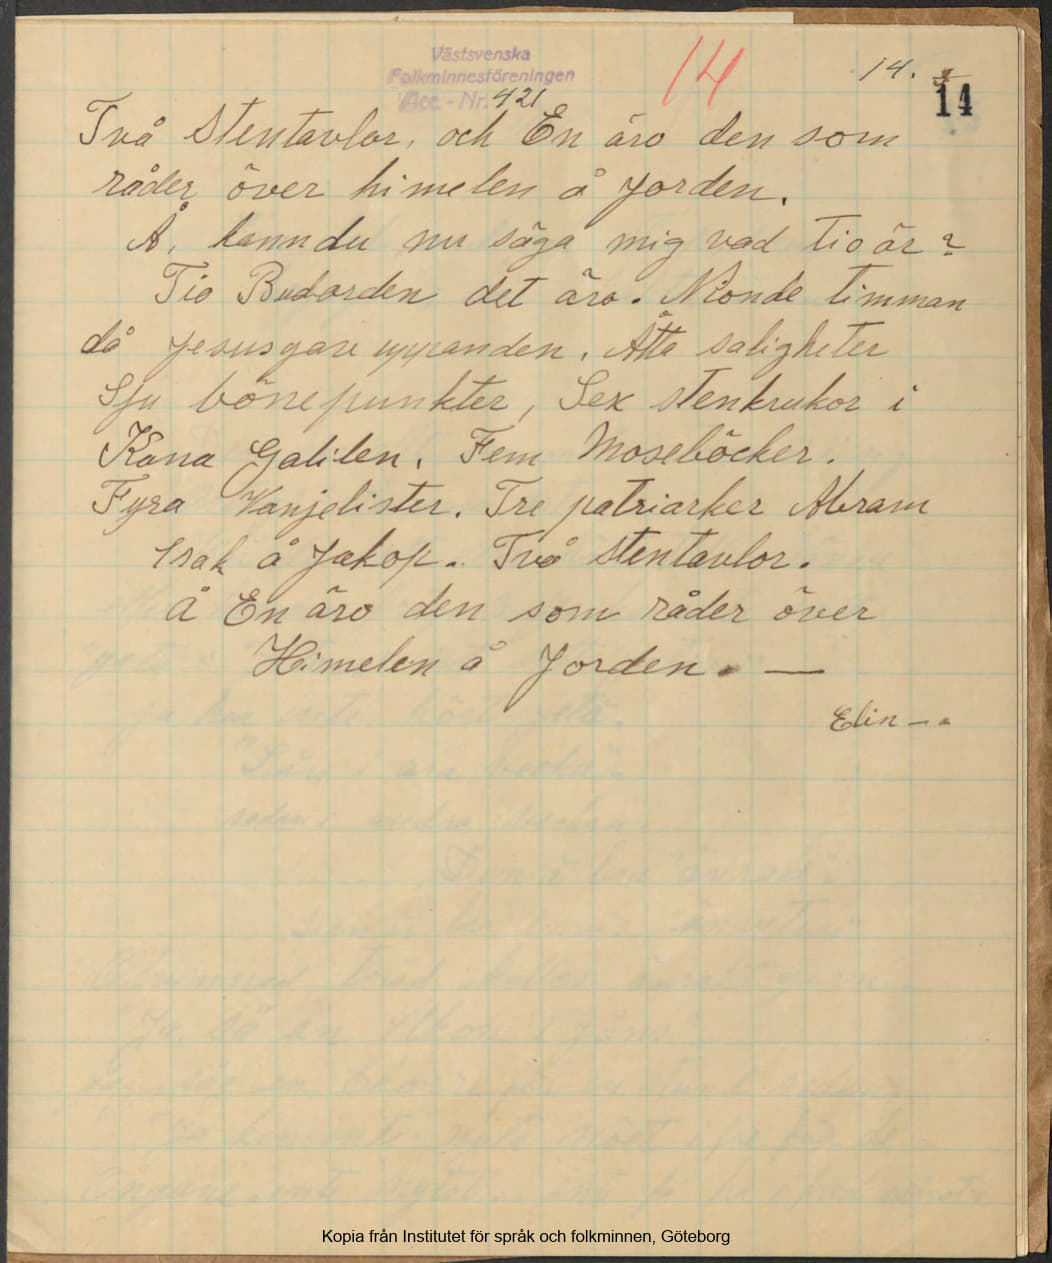 Västsvenska
Folkminnesföreningen
Acc.-Nr. 421
14
14.
14
Två Stentavlor, och En äro den som
råder över himelen å Jorden.
Å, kann du nu säga mig vad tio är?
Tio Budorden det äro. Nionde timman
då Jesus gav uppanden. Åtta saligheter
Sju bönepunkter, Sex stenkrukor i
Kana Galilen. Fem Moseböcker.
Fyra Vanjelister. Tre patriarker Abram
Isak å Jakop. Två Stentavlor.
Å En äro den som råder över
Himelen å Jorden. —
Elin
Kopia från Institutet för språk och folkminnen, Göteborg